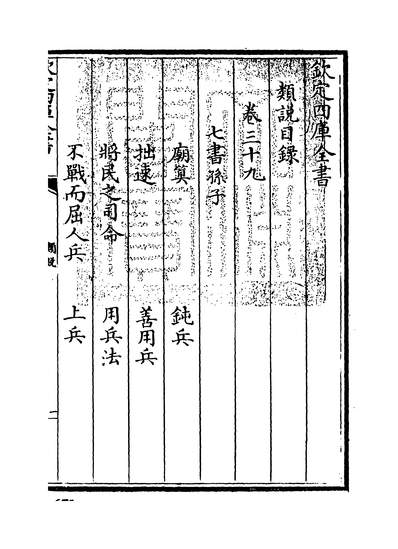 欽定四庫全書
類說目錄
卷三十九
七書孫子
廟算 鈍兵
拙速 善用兵
將民之司命 用兵法
不戰而屈人兵 上兵
類說